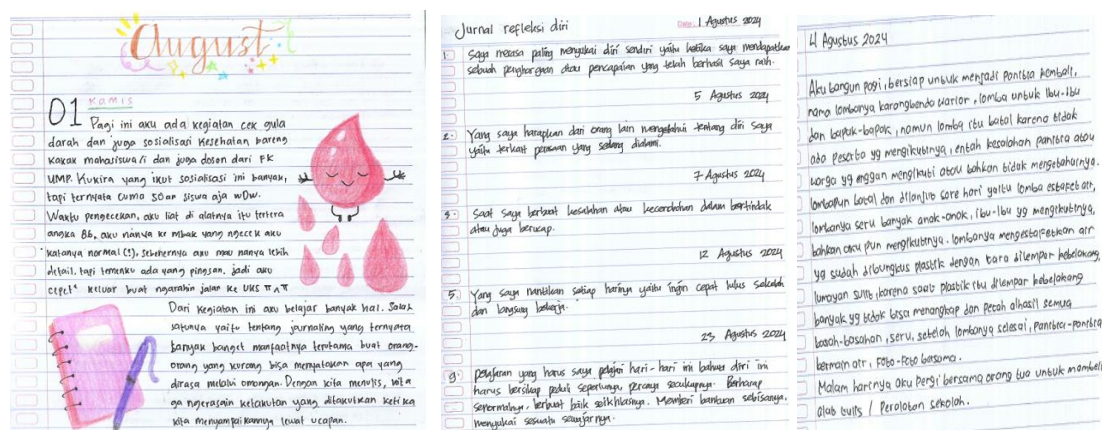 August
01 Kamis
Pagi ini aku ada kegiatan cek gula
darah dan juga sosialisasi kesehatan bareng
kakak mahasiswa/i dan juga dosen dari FK
UMP. Kukira yang ikut sosialisasi ini banyak,
tapi ternyata cuma 50an siswa aja wow.
Waktu pengecekan, aku liat di alatnya itu tertera
angka 86, aku nanya ke mbak yang ngecek aku
katanya normal (?), sebenernya aku mau nanya lebih
detail, tapi temenku ada yang pingsan, jadi aku
cepet² keluar buat ngarahin jalan ke UKS π^π
Dari kegiatan ini aku belajar banyak hal. Salah
satunya yaitu tentang journaling yang ternyata
banyak banget manfaatnya terutama buat orang-
orang yang kurang bisa menyatakan apa yang
dirasa melalui omongan. Dengan kita menulis, kita
ga ngerasain ketakutan yang ditakutkan ketika
kita menyampaikannya lewat ucapan.
Jurnal refleksi diri
Date. 1 Agustus 2024
1. Saya merasa paling menyukai diri sendiri yaitu ketika saya mendapatkan
sebuah penghargaan atau pencapaian yang telah berhasil saya raih.
5 Agustus 2024
2. Yang saya harapkan dari orang lain mengetahui tentang diri saya
yaitu terkait perasaan yang sedang dialami.
7 Agustus 2024
3. Saat saya berbuat kesalahan atau kecerobohan dalam bertindak
atau juga berucap.
12 Agustus 2024
5. Yang saya nantikan setiap harinya yaitu ingin cepat lulus sekolah
dan langsung bekerja.
23 Agustus 2024
9. pelajaran yang harus saya pelajari hari-hari ini bahwa diri ini
harus bersikap peduli seperlunya, percaya secukupnya. Berharap
sepermalnya, berbuat baik seikhlasnya. Memberi bantuan sebisanya,
menyukai sesuatu sewajarnya.
4 Agustus 2024
Aku bangun pagi, bersiap untuk menjadi panitia kembali,
nama lombanya karangbendo warior, lomba untuk Ibu-Ibu
dan bapak-bapak, namun lomba itu batal karena tidak
ada peserta yg mengikutinya, entah kesalahan panitia atau
warga yg enggan mengikuti atau bahkan tidak mengetahuinya.
lombapun batal dan dilanjut sore hari yaitu lomba estafet air,
lombanya seru banyak anak-anak, ibu-Ibu yg mengikutinya,
bahkan aku pun mengikutinya. lombanya mengestafetkan air
yg sudah dibungkus plastik dengan cara dilempar kebelakang,
lumayan sulit, karena saat plastik itu dilempar kebelakang
banyak yg tidak bisa menangkap dan pecah alhasil semua
basah-basahan, seru, setelah lombanya selesai, panitia-panitia
bermain air, foto-foto bersama.
Malam harinya aku pergi bersama orang tua untuk membeli
alat tulis / peralatan sekolah.